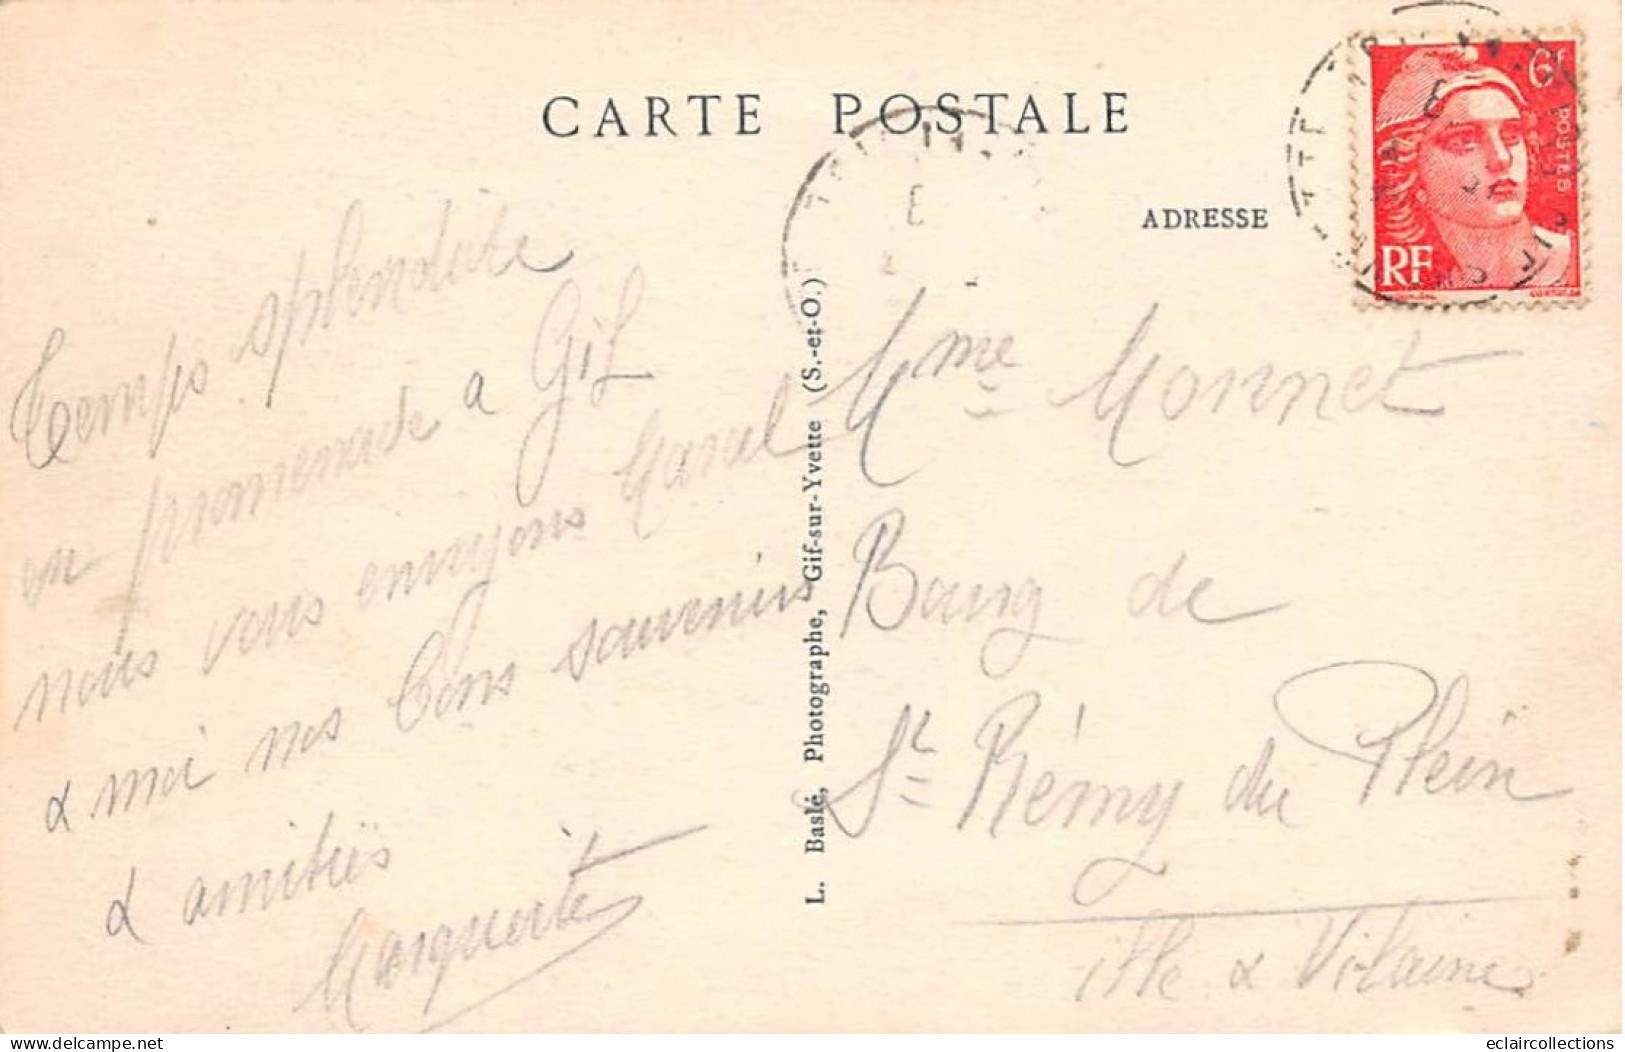 CARTE POSTALE
ADRESSE
6f
POSTES
RF
Temps splendide
en promenade a Gif
nous vous envoyons Marcel
& moi nos bons souvenirs
& amitiés
Marguerite
L. Baslé, Photographe, Gif-sur-Yvette (S.-et-O.)
Mme Monnet
Bourg de
St Rémy du Plein
ille & Vilaine
delcampe.net
eclaircollections